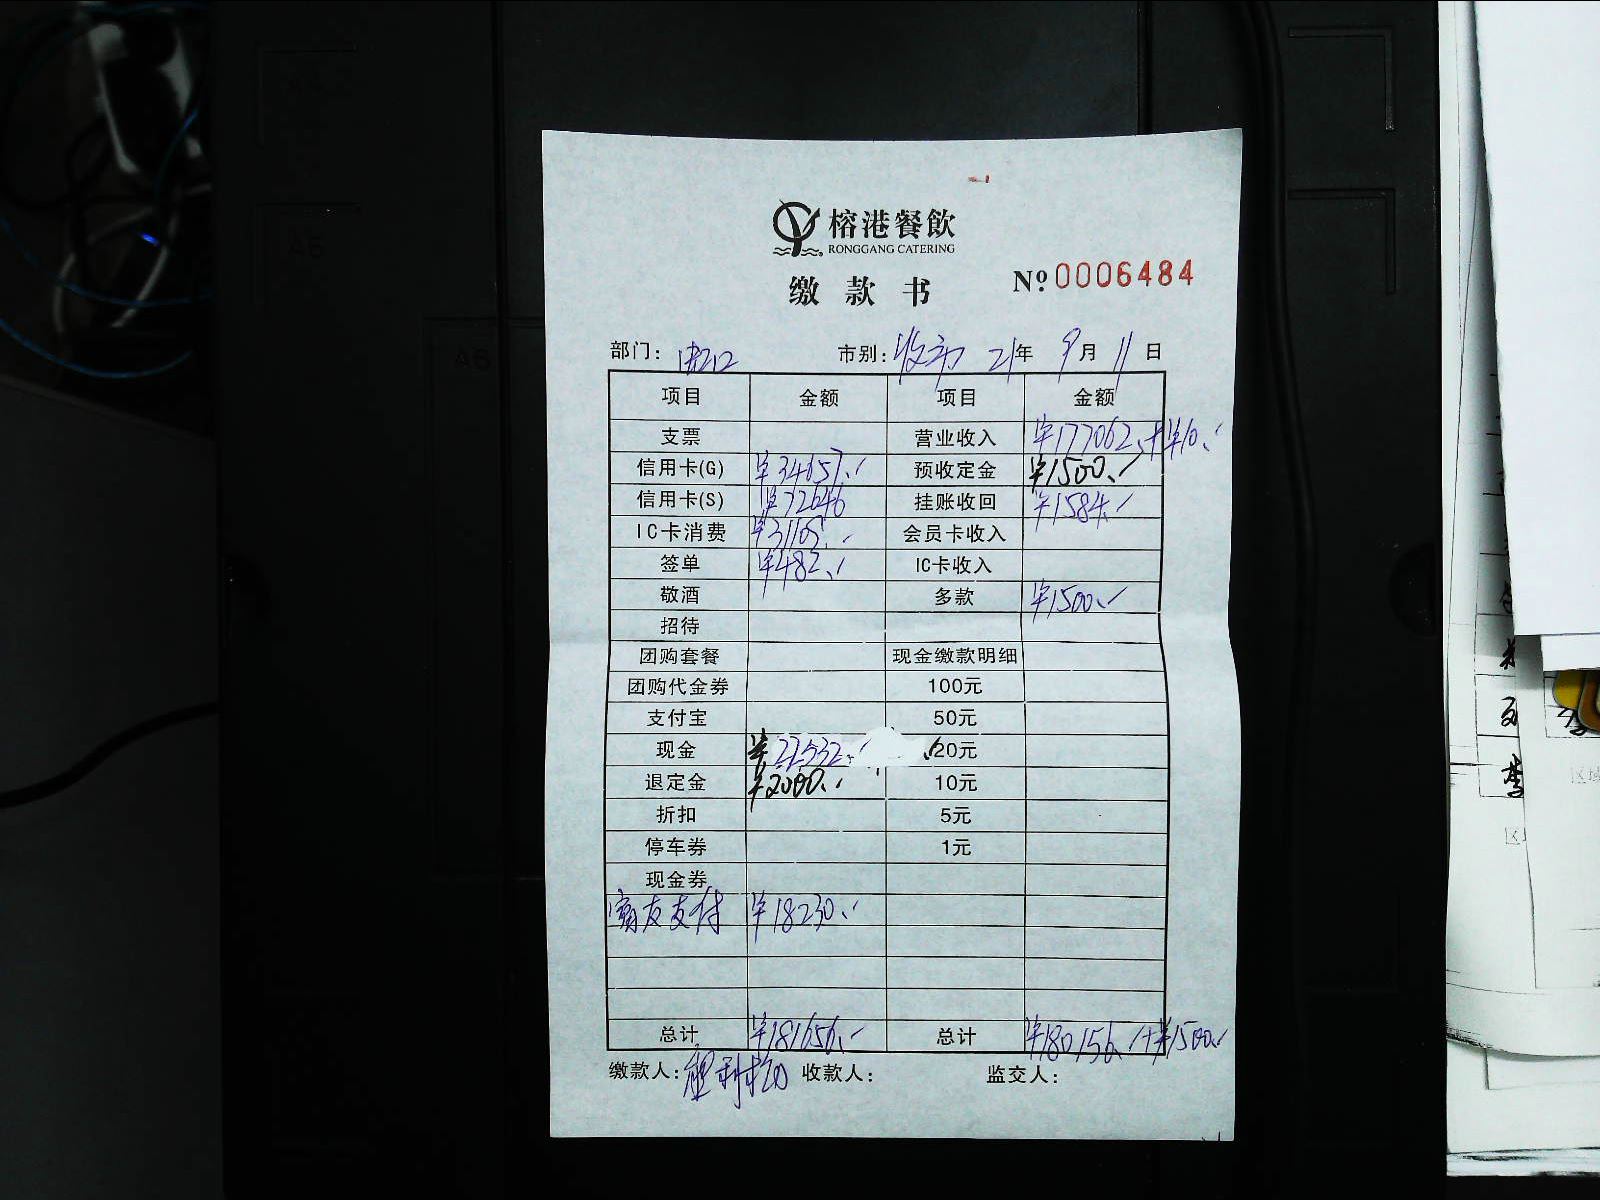 榕港餐飲
RONGGANG CATERING
缴款书
№ 0006484
部门: 市别: 收市 21年 9月 11日
项目 金额 项目 金额
支票 营业收入 ¥177062.+¥10.
信用卡(G) ¥34657. 预收定金 ¥1500.
信用卡(S) ¥72646 挂账收回 ¥1584.
IC卡消费 ¥31105. 会员卡收入
签单 ¥482. IC卡收入
敬酒 多款 ¥1500.
招待
团购套餐 现金缴款明细
团购代金券 100元
支付宝 50元
现金 ¥22532. 20元
退定金 ¥2000. 10元
折扣 5元
停车券 1元
现金券
支付 ¥18230.
总计 ¥181656. 总计 ¥180156.+¥1500.
缴款人: 收款人: 监交人: